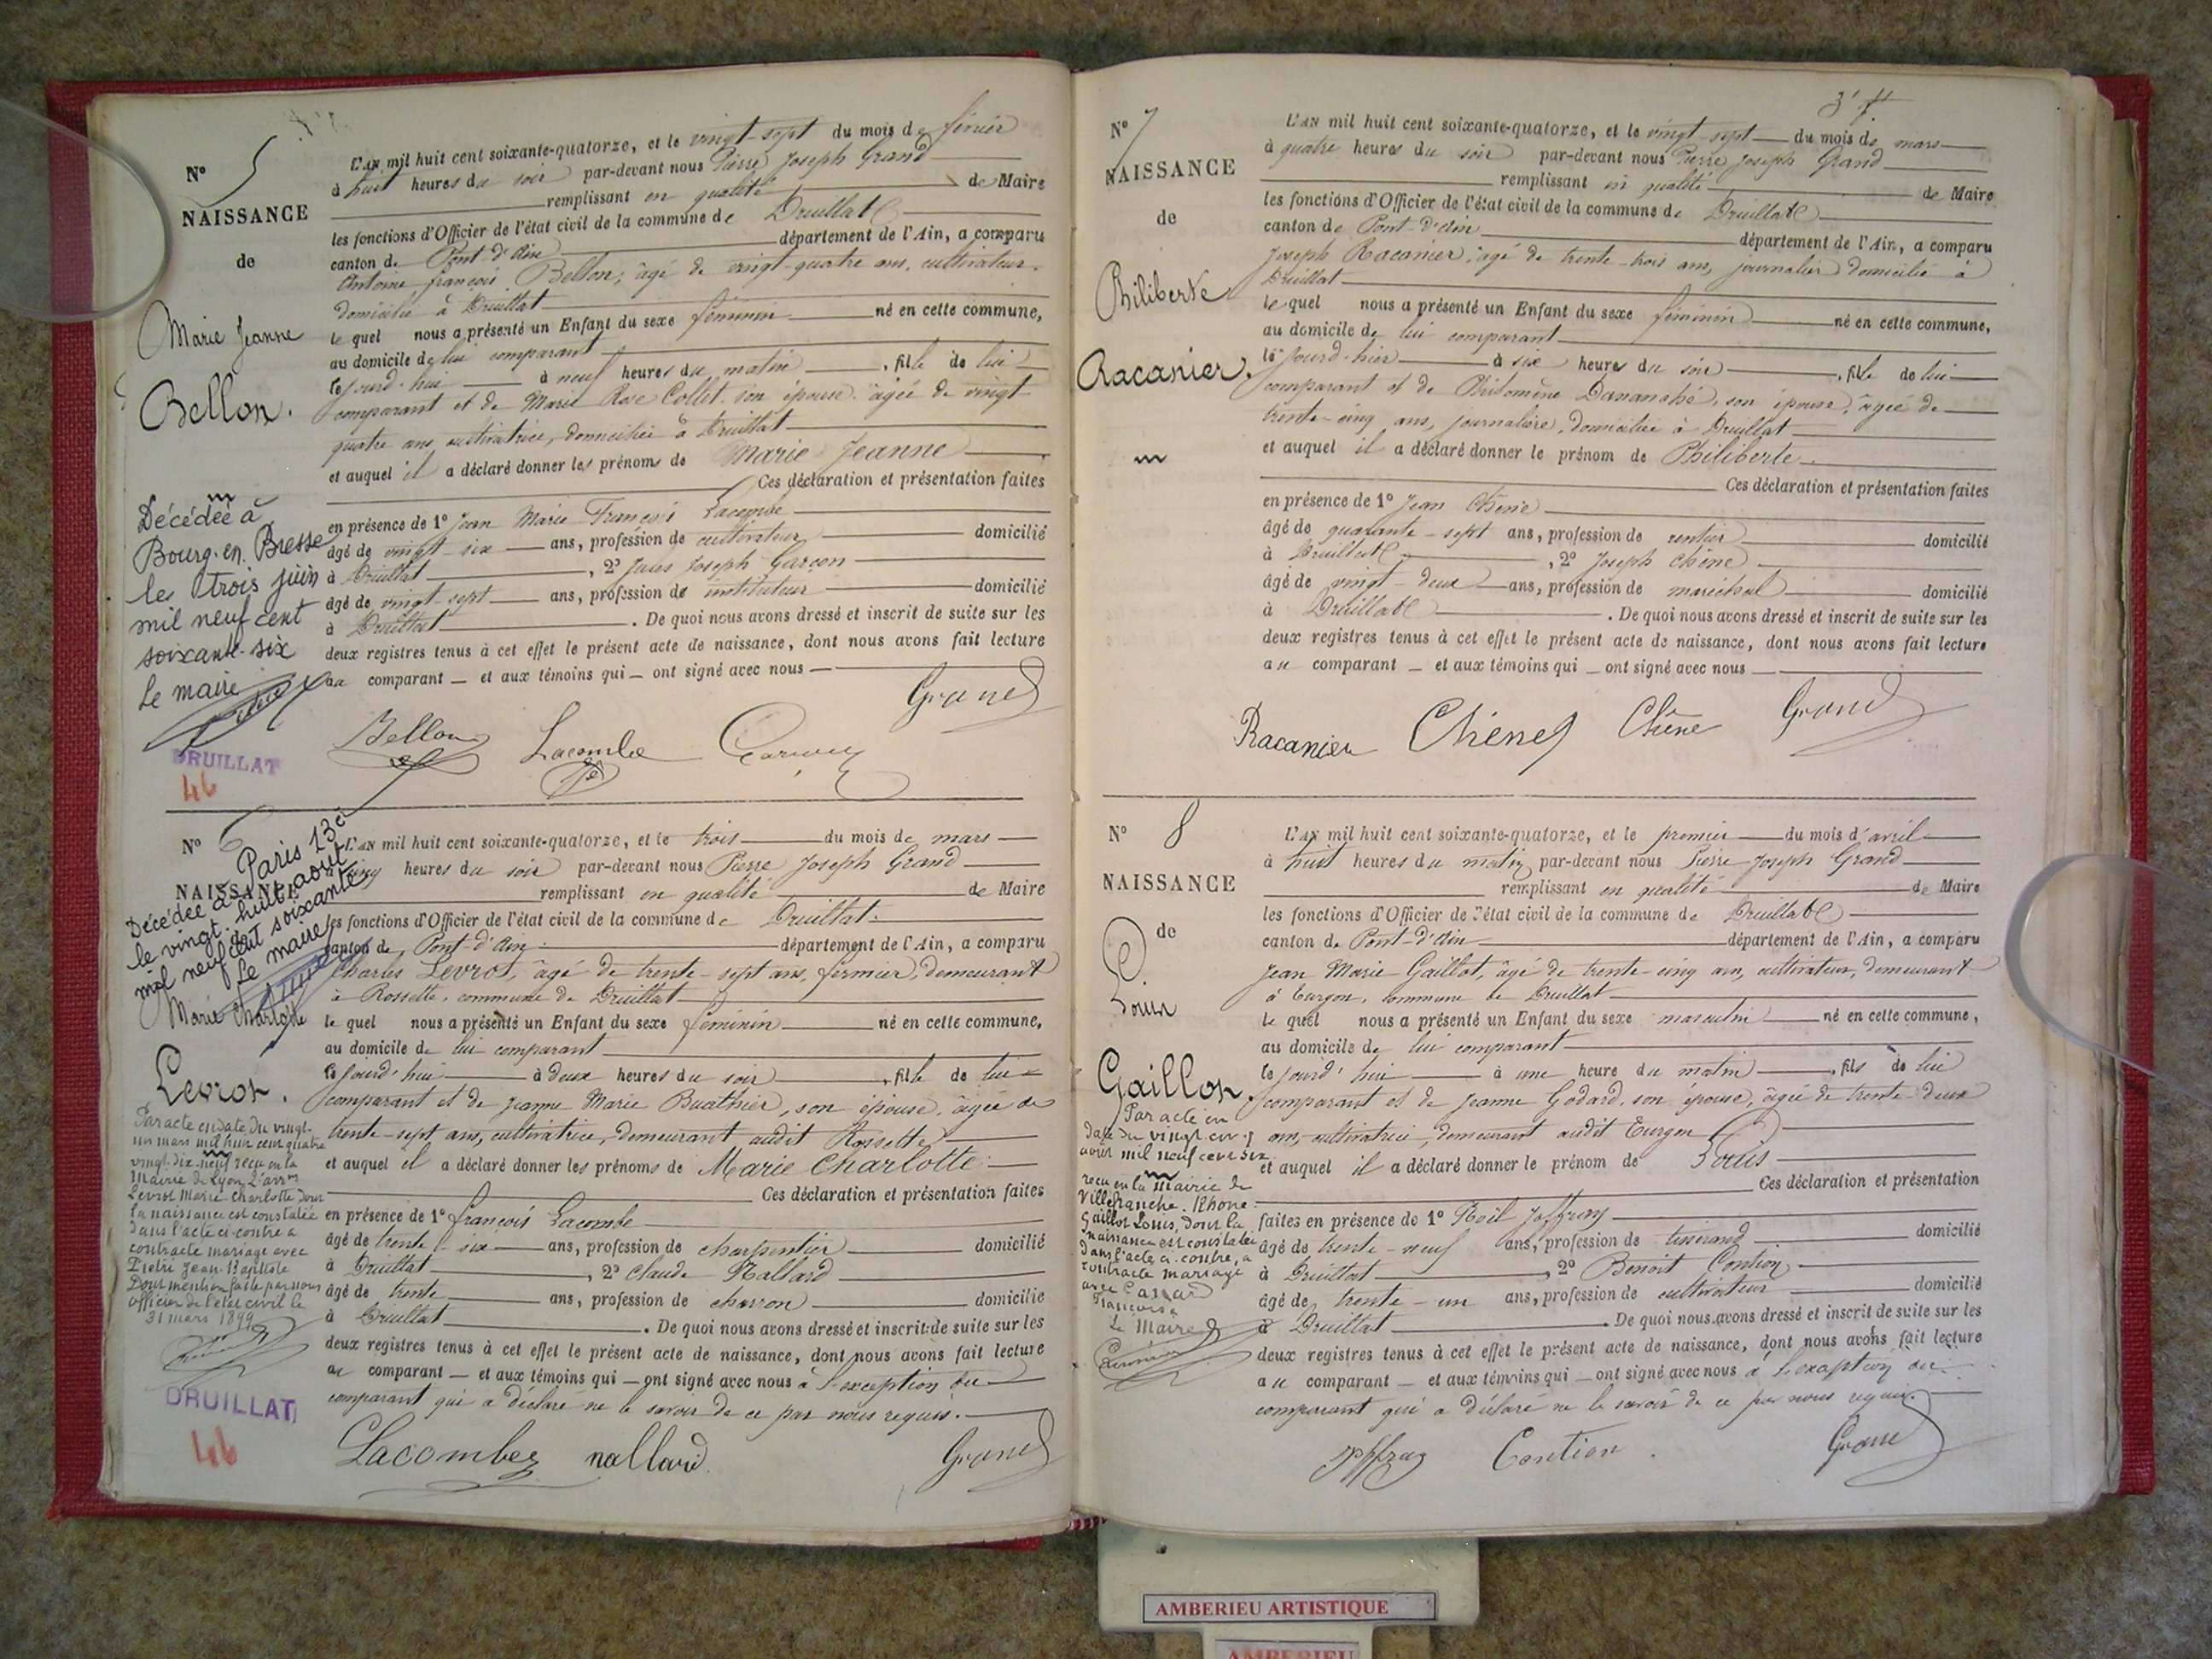 N° 5
NAISSANCE
de
Marie Jeanne
Bellon.
Décédée à
Bourg-en-Bresse
le trois juin
mil neuf cent
soixante-six
Le maire
DRUILLAT
46
L'AN mil huit cent soixante-quatorze, et le vingt-sept du mois de février
à huit heures du soir par-devant nous Pierre Joseph Grand
remplissant en qualité de Maire
les fonctions d'Officier de l'état civil de la commune de Druillat
canton de Pont-d'Ain département de l'Ain, a comparu
Antoine françois Bellon, âgé de vingt-quatre ans, cultivateur
domicilié à Druillat
lequel nous a présenté un Enfant du sexe féminin né en cette commune,
au domicile de lui comparant
le jourd'hui à neuf heures du matin, fille de lui
comparant et de Marie Rose Collet son épouse âgée de vingt
quatre ans, cultivatrice, domiciliée à Druillat
et auquel il a déclaré donner les prénoms de Marie Jeanne
Ces déclaration et présentation faites
en présence de 1° Jean Marie François Lacombe
âgé de vingt-six ans, profession de cultivateur domicilié
à Druillat, 2° Jules Joseph Garçon
âgé de vingt-sept ans, profession de instituteur domicilié
à Druillat. De quoi nous avons dressé et inscrit de suite sur les
deux registres tenus à cet effet le présent acte de naissance, dont nous avons fait lecture
au comparant et aux témoins qui ont signé avec nous
Grand
Bellon Lacombe
N° 6
NAISSANCE
Décédée à Paris 13e
le vingt-huit août
mil neuf cent soixante
Le maire
Marie Charlotte
Levrot.
Par acte en date du vingt-
un mars mil huit cent quatre
vingt-dix-neuf reçu en la
Mairie de Lyon 2e arr.
Levrot Marie Charlotte dont
la naissance est constatée
dans l'acte ci-contre a
contracté mariage avec
Jean-Baptiste
Dont mention faite par nous
officier de l'état civil le
31 mars 1899
DRUILLAT
46
L'AN mil huit cent soixante-quatorze, et le trois du mois de mars
à cinq heures du soir par-devant nous Pierre Joseph Grand
remplissant en qualité de Maire
les fonctions d'Officier de l'état civil de la commune de Druillat
canton de Pont-d'Ain département de l'Ain, a comparu
Charles Levrot, âgé de trente-sept ans, fermier, demeurant
à Rossette, commune de Druillat
lequel nous a présenté un Enfant du sexe féminin né en cette commune,
au domicile de lui comparant
le jourd'hui à deux heures du soir, fille de lui
comparant et de Jeanne Marie Buathier, son épouse, âgée de
trente-sept ans, cultivatrice, demeurant audit Rossette
et auquel il a déclaré donner les prénoms de Marie Charlotte
Ces déclaration et présentation faites
en présence de 1° françois Lacombe
âgé de trente-six ans, profession de charpentier domicilié
à Druillat, 2° Claude Nallard
âgé de trente ans, profession de charron domicilié
à Druillat. De quoi nous avons dressé et inscrit de suite sur les
deux registres tenus à cet effet le présent acte de naissance, dont nous avons fait lecture
au comparant et aux témoins qui ont signé avec nous à l'exception du
comparant qui a déclaré ne le savoir de ce par nous requis.
Lacombe nallard Grand
N° 7
NAISSANCE
de
Philiberte
Racanier.
L'AN mil huit cent soixante-quatorze, et le vingt-sept du mois de mars
à quatre heures du soir par-devant nous Pierre Joseph Grand
remplissant en qualité de Maire
les fonctions d'Officier de l'état civil de la commune de Druillat
canton de Pont-d'Ain département de l'Ain, a comparu
Joseph Racanier, âgé de trente-trois ans, journalier domicilié à
Druillat
lequel nous a présenté un Enfant du sexe féminin né en cette commune,
au domicile de lui comparant
le jourd-hier à six heures du soir, fille de lui
comparant et de Philomène Dananché, son épouse, âgée de
trente-cinq ans, journalière, domiciliée à Druillat
et auquel il a déclaré donner le prénom de Philiberte.
Ces déclaration et présentation faites
en présence de 1° Jean Chêne
âgé de quarante-sept ans, profession de rentier domicilié
à Druillat, 2° Joseph Chêne
âgé de vingt-deux ans, profession de maréchal domicilié
à Druillat. De quoi nous avons dressé et inscrit de suite sur les
deux registres tenus à cet effet le présent acte de naissance, dont nous avons fait lecture
au comparant et aux témoins qui ont signé avec nous
Racanier Chêne Chêne Grand
N° 8
NAISSANCE
de
Louis
Gaillot.
Par acte en
date du vingt-cinq
août mil neuf cent six
reçu en la Mairie de
Villefranche. Rhône
Gaillot Louis, dont la
naissance est constatée
dans l'acte ci-contre, a
contracté mariage
avec
Françoise
Le Maire
L'AN mil huit cent soixante-quatorze, et le premier du mois d'avril
à huit heures du matin par-devant nous Pierre Joseph Grand
remplissant en qualité de Maire
les fonctions d'Officier de l'état civil de la commune de Druillat
canton de Pont-d'Ain département de l'Ain, a comparu
Jean Marie Gaillot, âgé de trente-cinq ans, cultivateur, demeurant
à Turgon, commune de Druillat
lequel nous a présenté un Enfant du sexe masculin né en cette commune,
au domicile de lui comparant
le jourd'hui à une heure du matin, fils de lui
comparant et de Jeanne Godard, son épouse, âgée de trente-deux
ans, cultivatrice, demeurant audit Turgon
et auquel il a déclaré donner le prénom de Louis
Ces déclaration et présentation
faites en présence de 1° Joffray
âgé de trente-neuf ans, profession de tisserand domicilié
à Druillat, 2° Benoit Contion
âgé de trente-un ans, profession de cultivateur domicilié
à Druillat. De quoi nous avons dressé et inscrit de suite sur les
deux registres tenus à cet effet le présent acte de naissance, dont nous avons fait lecture
au comparant et aux témoins qui ont signé avec nous à l'exception du
comparant qui a déclaré ne le savoir de ce par nous requis.
Joffray Contion Grand
AMBERIEU ARTISTIQUE
AMBERIEU